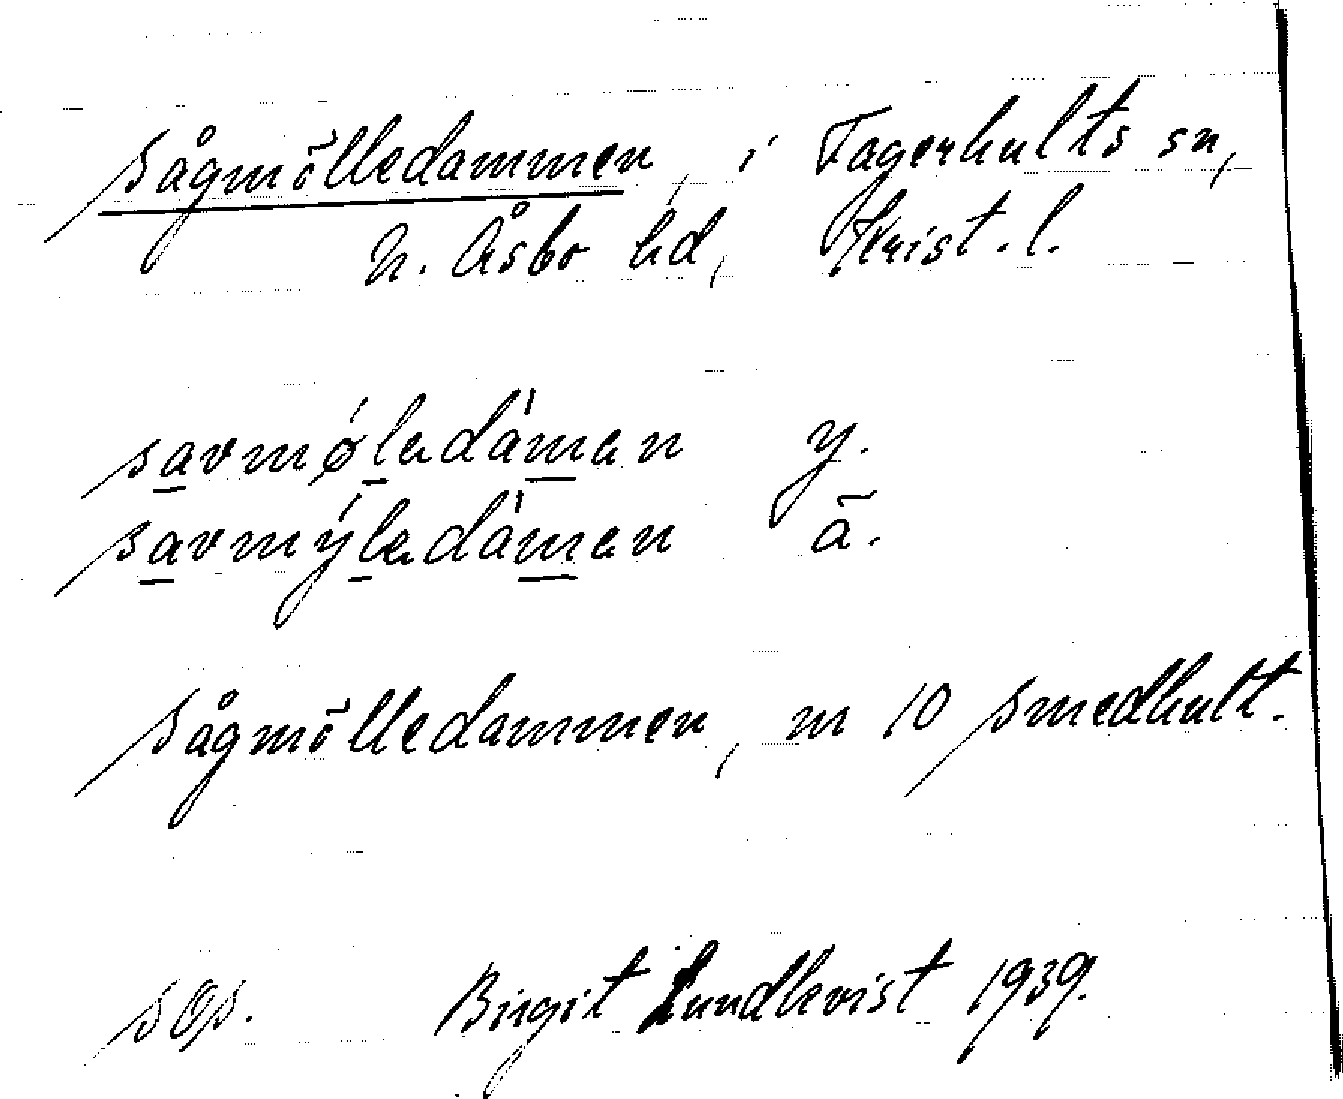 Sågmölledammen, i Fagerhults sn,
N. Åsbo hd, Krist. l.
savmǿladáman y.
savmýladáman ä.
Sågmölledammen, m 10 Smedhult.
Birgit Lundkvist 1939.